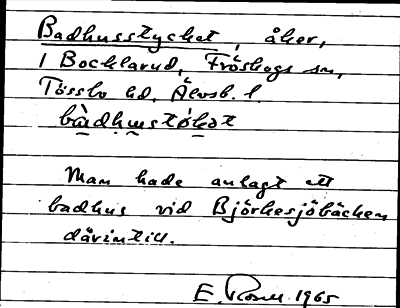 Badhusstycket, åker,
1 Bocklarud, Fröskogs sn,
Tössbo hd, Älvsb. l.
bàdhu̱stø̱kət
Man hade anlagt ett
badhus vid Björkesjöbäcken
därintill.
E. Rosell 1965